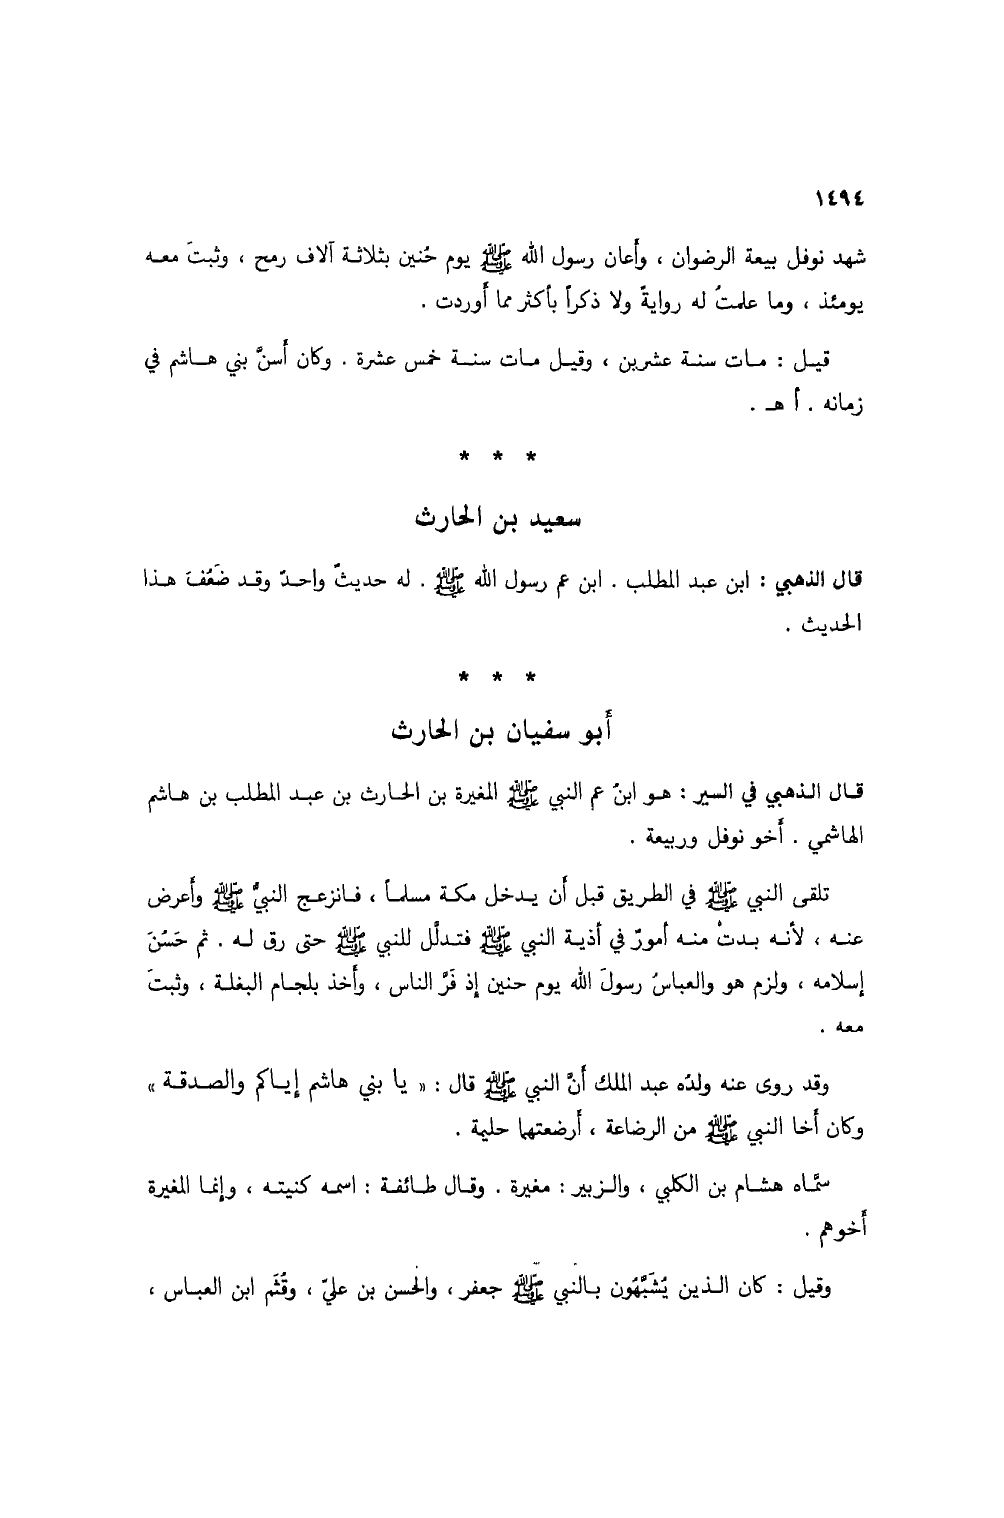 ١٤٩٤
شهد نوفل بيعة الرضوان ، وأعان رسول الله ﷺ يوم حُنين بثلاثة آلاف رمح ، وثبتَ معه
يومئذ ، وما علمتُ له روايةً ولا ذكراً بأكثر مما أوردت .
قيل : مات سنة عشرين ، وقيل مات سنة خمس عشرة . وكان أسنَّ بني هاشم في
زمانه . أ هـ .
* * *
سعيد بن الحارث
قال الذهبي : ابن عبد المطلب . ابن عم رسول الله ﷺ . له حديثٌ واحدٌ وقد ضَعُفَ هذا
الحديث .
* * *
أبو سفيان بن الحارث
قال الذهبي في السير : هو ابنُ عم النبي ﷺ المغيرة بن الحارث بن عبد المطلب بن هاشم
الهاشمي . أخو نوفل وربيعة .
تلقى النبي ﷺ في الطريق قبل أن يدخل مكة مسلماً ، فانزعج النبيُّ ﷺ وأعرض
عنه ، لأنه بدتْ منه أمورٌ في أذية النبي ﷺ فتدلَّل للنبي ﷺ حتى رق له . ثم حَسُنَ
إسلامه ، ولزم هو والعباسُ رسولَ الله يوم حنين إذ فَرَّ الناس ، وأخذ بلجام البغلة ، وثبتَ
معه .
وقد روى عنه ولدُه عبد الملك أنَّ النبي ﷺ قال : « يا بني هاشم إياكم والصدقة »
وكان أخا النبي ﷺ من الرضاعة ، أرضعتهما حليمة .
سمَّاه هشام بن الكلبي ، والزبير : مغيرة . وقال طائفة : اسمه كنيته ، وإنما المغيرة
أخوهم .
وقيل : كان الذين يُشَبَّهُون بالنبي ﷺ جعفر ، والحسن بن عليّ ، وقُثَم ابن العباس ،